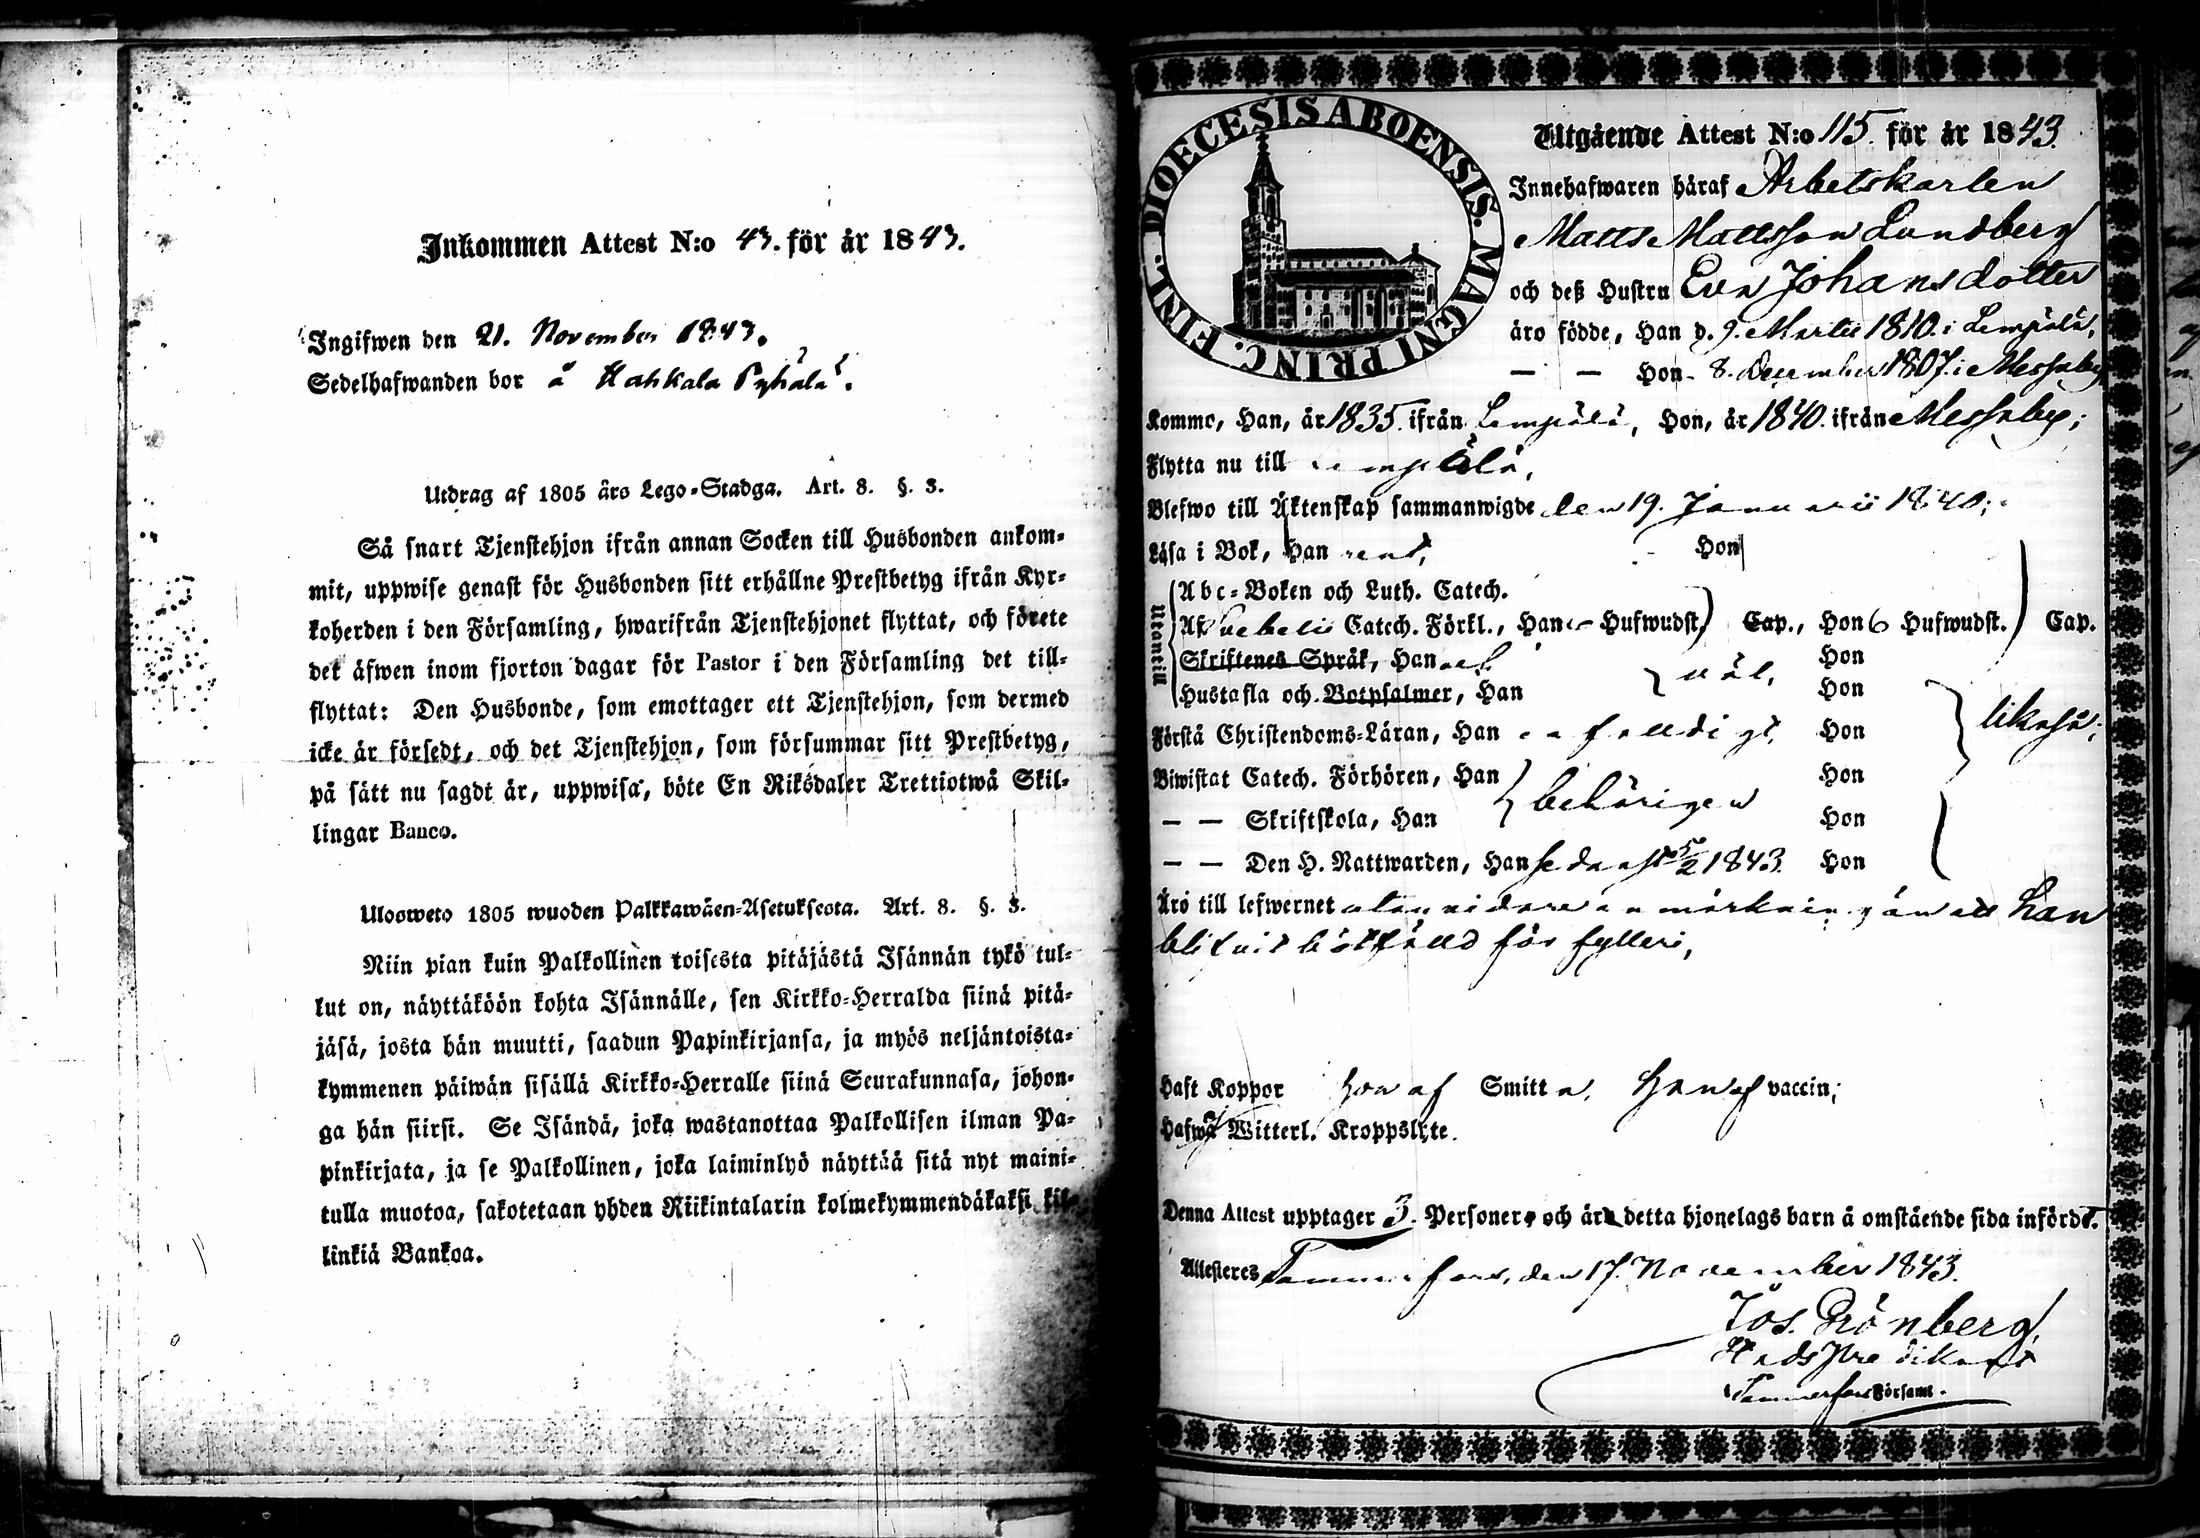 Inkommen Attest N:o 43. för år 1843.
Ingifwen den 21. November 1843.
Sedelhafwanden bor å Hahkala Pyhälä.
Utdrag af 1805 års Lego-Stadga. Art. 8. §. 3.
Så snart Tjenstehjon ifrån annan Socken till Husbonden ankom-
mit, uppwise genast för Husbonden sitt erhållne Prestbetyg ifrån Kyr-
koherden i den Församling, hwarifrån Tjenstehjonet flyttat, och förete
det äfwen inom fjorton dagar för Pastor i den Församling det till-
flyttat: Den Husbonde, som emottager ett Tjenstehjon, som dermed
icke är försedt, och det Tjenstehjon, som försummar sitt Prestbetyg,
på sätt nu sagdt är, uppwisa, böte En Riksdaler Trettiotwå Skil-
lingar Banco.
Ulosweto 1805 wuoden Palkkawäen-Asetuksesta. Art. 8. §. 3.
Niin pian kuin Palkollinen toisesta pitäjästä Isännän tykö tul-
lut on, näyttäköön kohta Isännälle, sen Kirkko-Herralda siinä pitä-
jäsä, josta hän muutti, saadun Papinkirjansa, ja myös neljäntoista-
kymmenen päiwän sisällä Kirkko-Herralle siinä Seurakunnasa, johon-
ga hän siirsi. Se Isändä, joka wastanottaa Palkollisen ilman Pa-
pinkirjata, ja se Palkollinen, joka laiminlyö näyttää sitä nyt maini-
tulla muotoa, sakotetaan yhden Riikintalarin kolmekymmendäkaksi kil-
linkiä Bankoa.
DIOECESIS ABOENSIS. MAGNI PRINC. FINL.
Utgående Attest N:o 115. för år 1843.
Innehafwaren häraf Arbetskarlen
Matts Mattsson Lundberg
och deß Hustru Eva Johansdotter
äro födde, Han d. 9. Martii 1810. i Lempälä,
— — Hon 8. December 1807. i Messuby
Kommo, Han, år 1835. ifrån Lempälä, Hon, år 1840. ifrån Messuby;
Flytta nu till Lempälä,
Blefwo till Äktenskap sammanwigde den 19. Januarii 1840;
Läsa i Bok, Han rent, Hon
Utantill
Abc-Boken och Luth. Catech.
Af Svebelii Catech. Förkl., Han 6 Hufwudst. Cap., Hon 6 Hufwudst. Cap.
Skriftenes Språk, Han och väl, Hon
Hustafla och Botpsalmer, Han Hon
Förstå Christendoms-Läran, Han enfalldigt, Hon likaså;
Biwistat Catech. Förhören, Han behörigen Hon
— — Skriftskola, Han Hon
— — Den H. Nattwarden, Han sednast 5/2 1843. Hon
Äro till lefwernet utan vidare anmärkning än att han
blifvit bötfälld för fylleri,
Haft Koppor Hon af Smitta, Han af vaccin;
Hafwa Witterl. Kroppslyte.
Denna Attest upptager 3. Personer, och är detta hjonelags barn å omstående sida infördt.
Attesteres Tammerfors, den 17. November 1843.
Jos. Grönberg,
Hradspredikant
Tammerfors Församl.